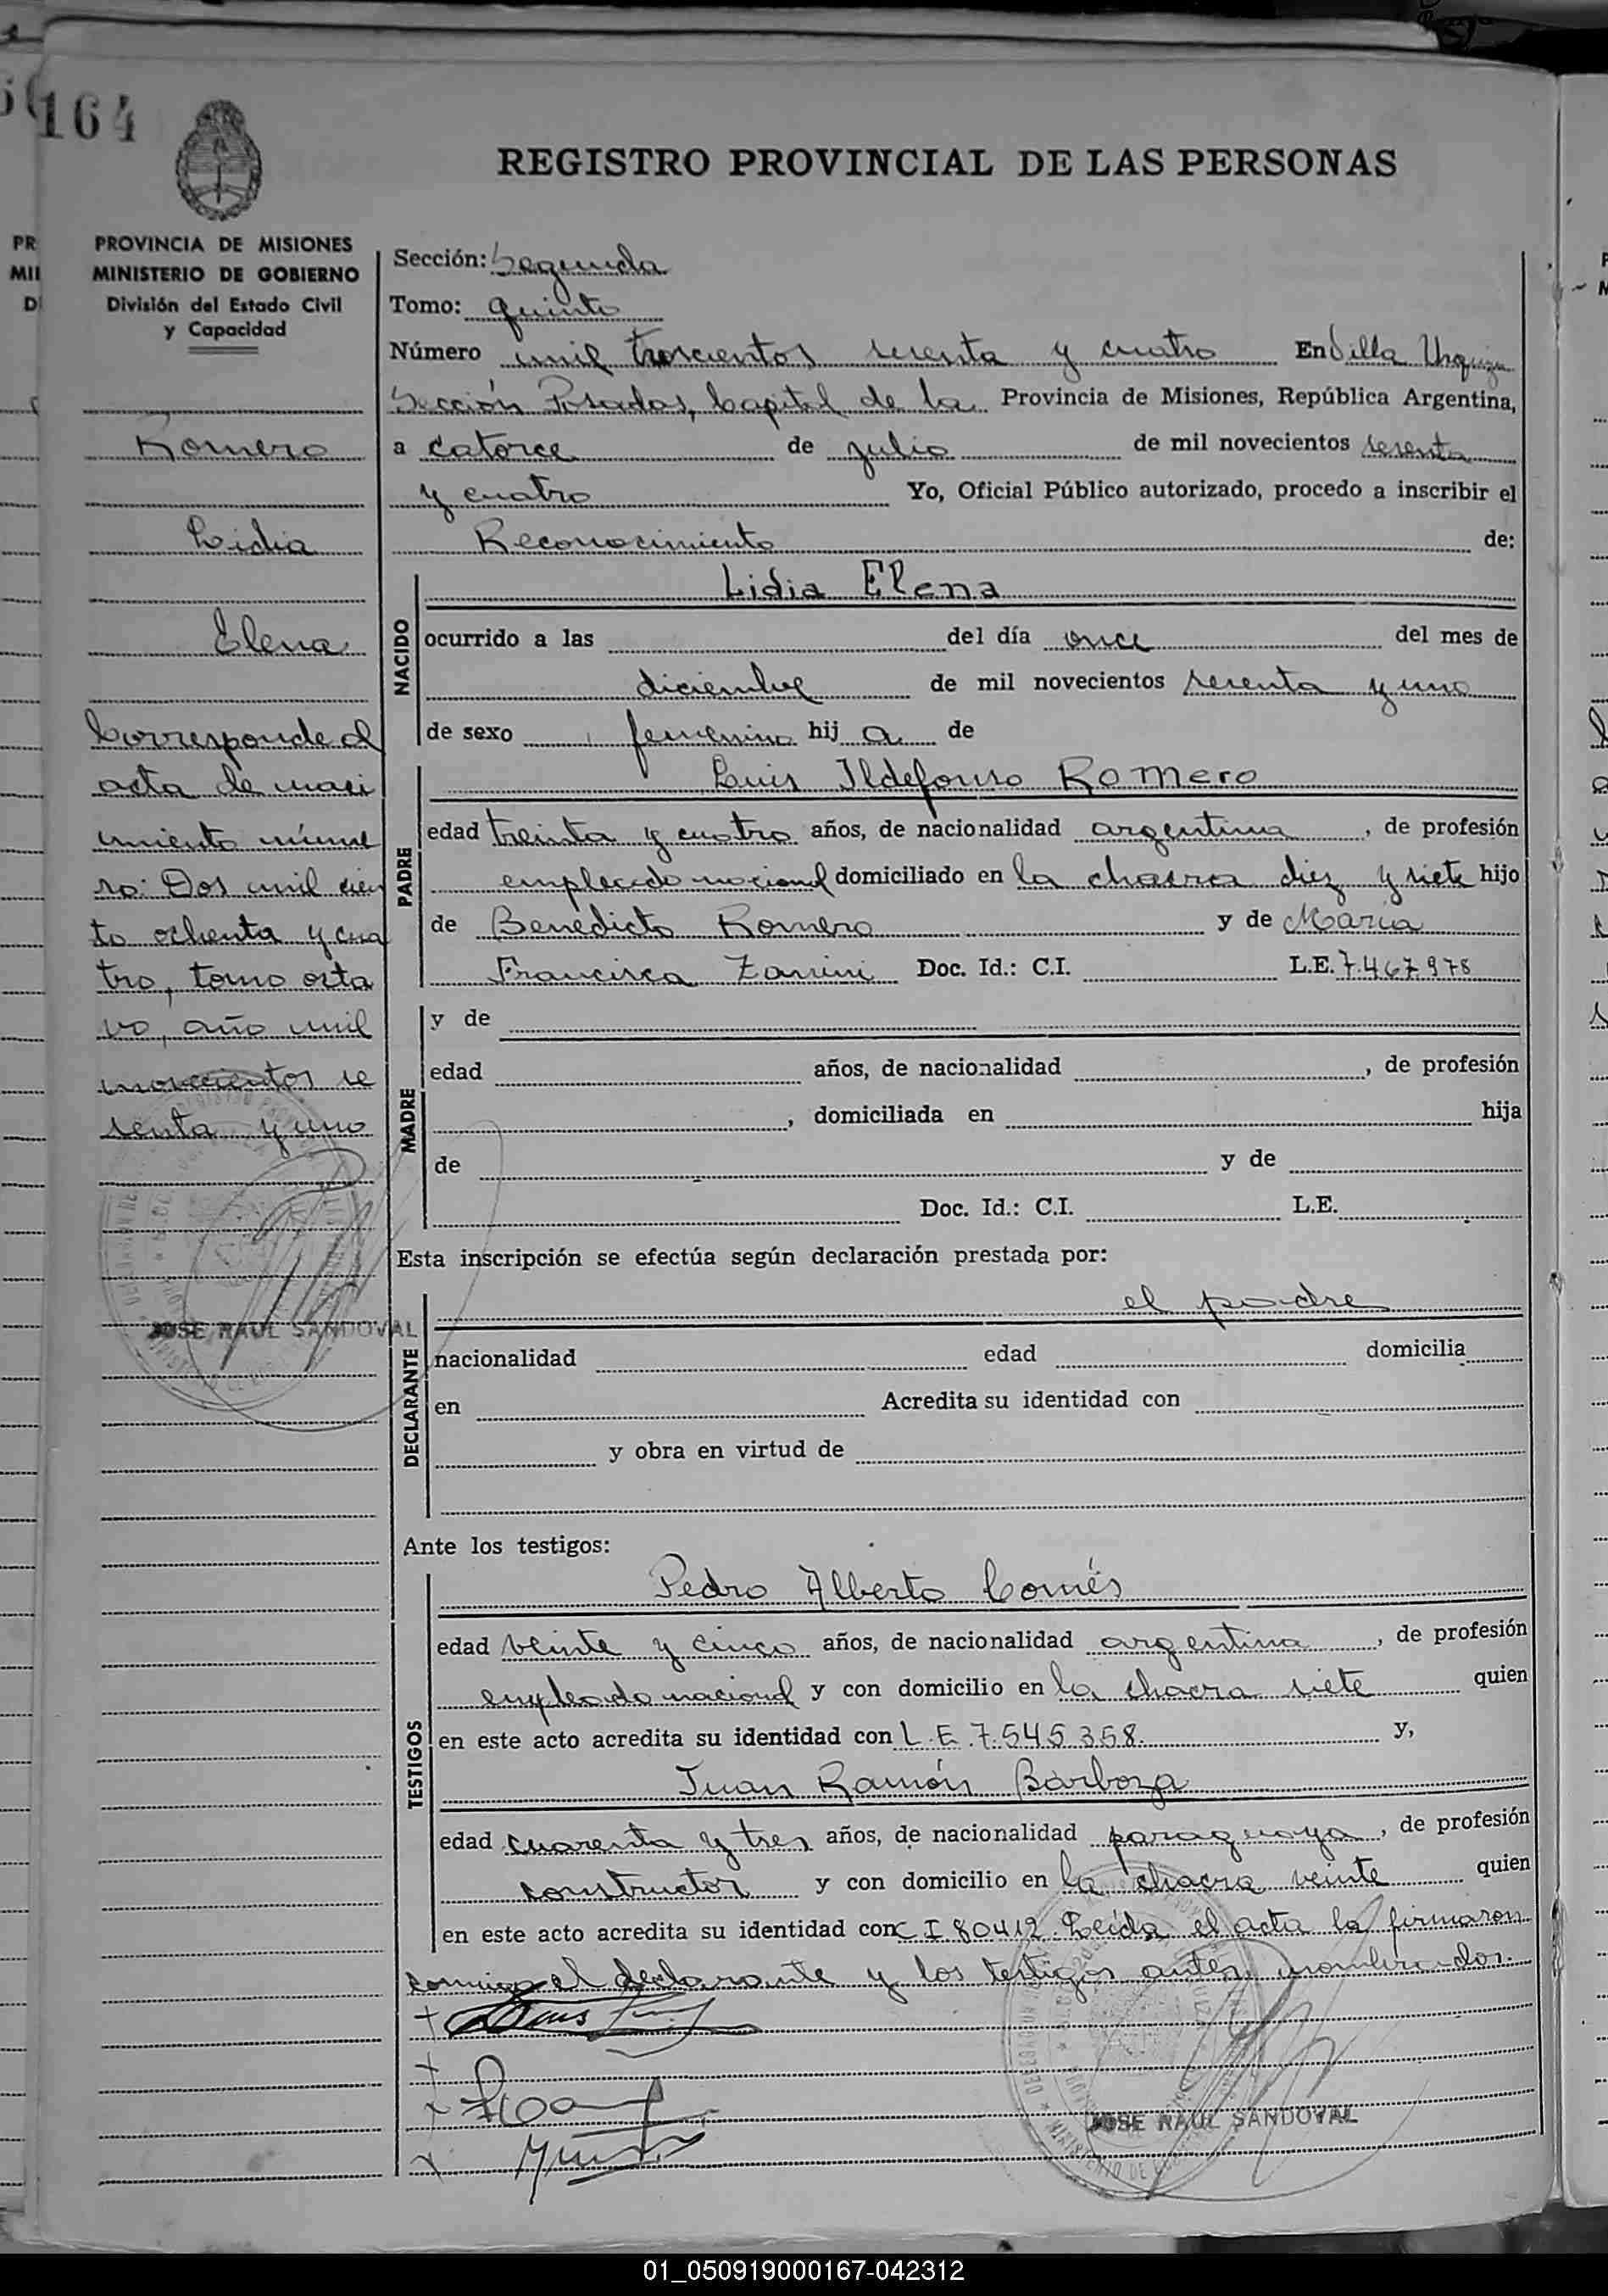 164
REGISTRO PROVINCIAL DE LAS PERSONAS
PROVINCIA DE MISIONES
MINISTERIO DE GOBIERNO
División del Estado Civil
y Capacidad
Romero
Lidia
Elena
Corresponde al
acta de naci
miento núme
ro: Dos mil cien
to ochenta y cua
tro, tomo octa
vo, año mil
novecientos se
senta y uno
JOSE RAUL SANDOVAL
Sección: Segunda
Tomo: quinto
Número mil trescientos sesenta y cuatro En Villa Urquiza
Sección Posadas, Capital de la Provincia de Misiones, República Argentina,
a catorce de julio de mil novecientos sesenta
y cuatro Yo, Oficial Público autorizado, procedo a inscribir el
Reconocimiento de:
NACIDO
Lidia Elena
ocurrido a las del día once del mes de
diciembre de mil novecientos sesenta y uno
de sexo femenino hij a de
PADRE
Luis Ildefonso Romero
edad treinta y cuatro años, de nacionalidad argentina, de profesión
empleado nacional domiciliado en la chacra diez y siete hijo
de Benedicto Romero y de María
Francisca Doc. Id.: C.I. L.E. 7.467.978
MADRE
y de
edad años, de nacionalidad , de profesión
, domiciliada en hija
de y de
Doc. Id.: C.I. L.E.
Esta inscripción se efectúa según declaración prestada por:
DECLARANTE
el padre
nacionalidad edad domicilia
en Acredita su identidad con
y obra en virtud de
Ante los testigos:
TESTIGOS
Pedro Alberto
edad veinte y cinco años, de nacionalidad argentina, de profesión
empleado nacional y con domicilio en la chacra siete quien
en este acto acredita su identidad con L.E. 7.545.358. y,
Juan Ramón Barboza
edad cuarenta y tres años, de nacionalidad paraguaya, de profesión
constructor y con domicilio en la chacra veinte quien
en este acto acredita su identidad con C I 80412. Leída el acta la firmaron
conmigo el declarante y los testigos antes nombrados.
JOSE RAUL SANDOVAL
01_050919000167-042312